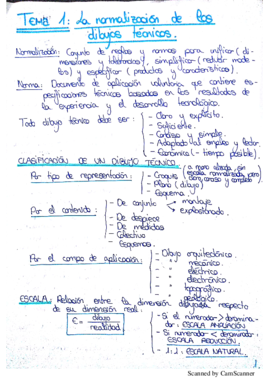 TEMA 1: La normalización de los
dibujos técnicos.
Normalización: Conjunto de reglas y normas para unificar (di-
mensiones y tolerancias), simplificar (reducir mode-
los) y especificar (productos y características).
Norma: Documento de aplicación voluntaria que contiene es-
pecificaciones técnicas basadas en los resultados de
la experiencia y el desarrollo tecnológico.
Todo dibujo técnico debe ser: - Claro y explícito.
- Suficiente.
- Conciso y simple.
- Adaptado al empleo y lector.
- Económica (- tiempo posible).
CLASIFICACIÓN DE UN DIBUJO TÉCNICO.
Por tipo de representación: - Croquis (a mano alzada, sin
escala normalizada, pero
claro, conciso y completo
- Plano (dibujo)
- Esquema
Por el contenido: - De conjunto montaje
explosionado.
- De despiece
- De medidas
- Colectivo
- Esquemas.
Por el campo de aplicación: - Dibujo arquitectónico.
- " mecánico.
- " eléctrico.
- " electrónico.
- " topográfico.
- " geológico
ESCALA: Relación entre la dimensión dibujada respecto
de su dimensión real:
E = dibujo / realidad
- Si el numerador > denomina-
dor: ESCALA AMPLIACIÓN
- Si numerador < denominador:
ESCALA REDUCCIÓN.
- 1:1: ESCALA NATURAL.
Scanned by CamScanner